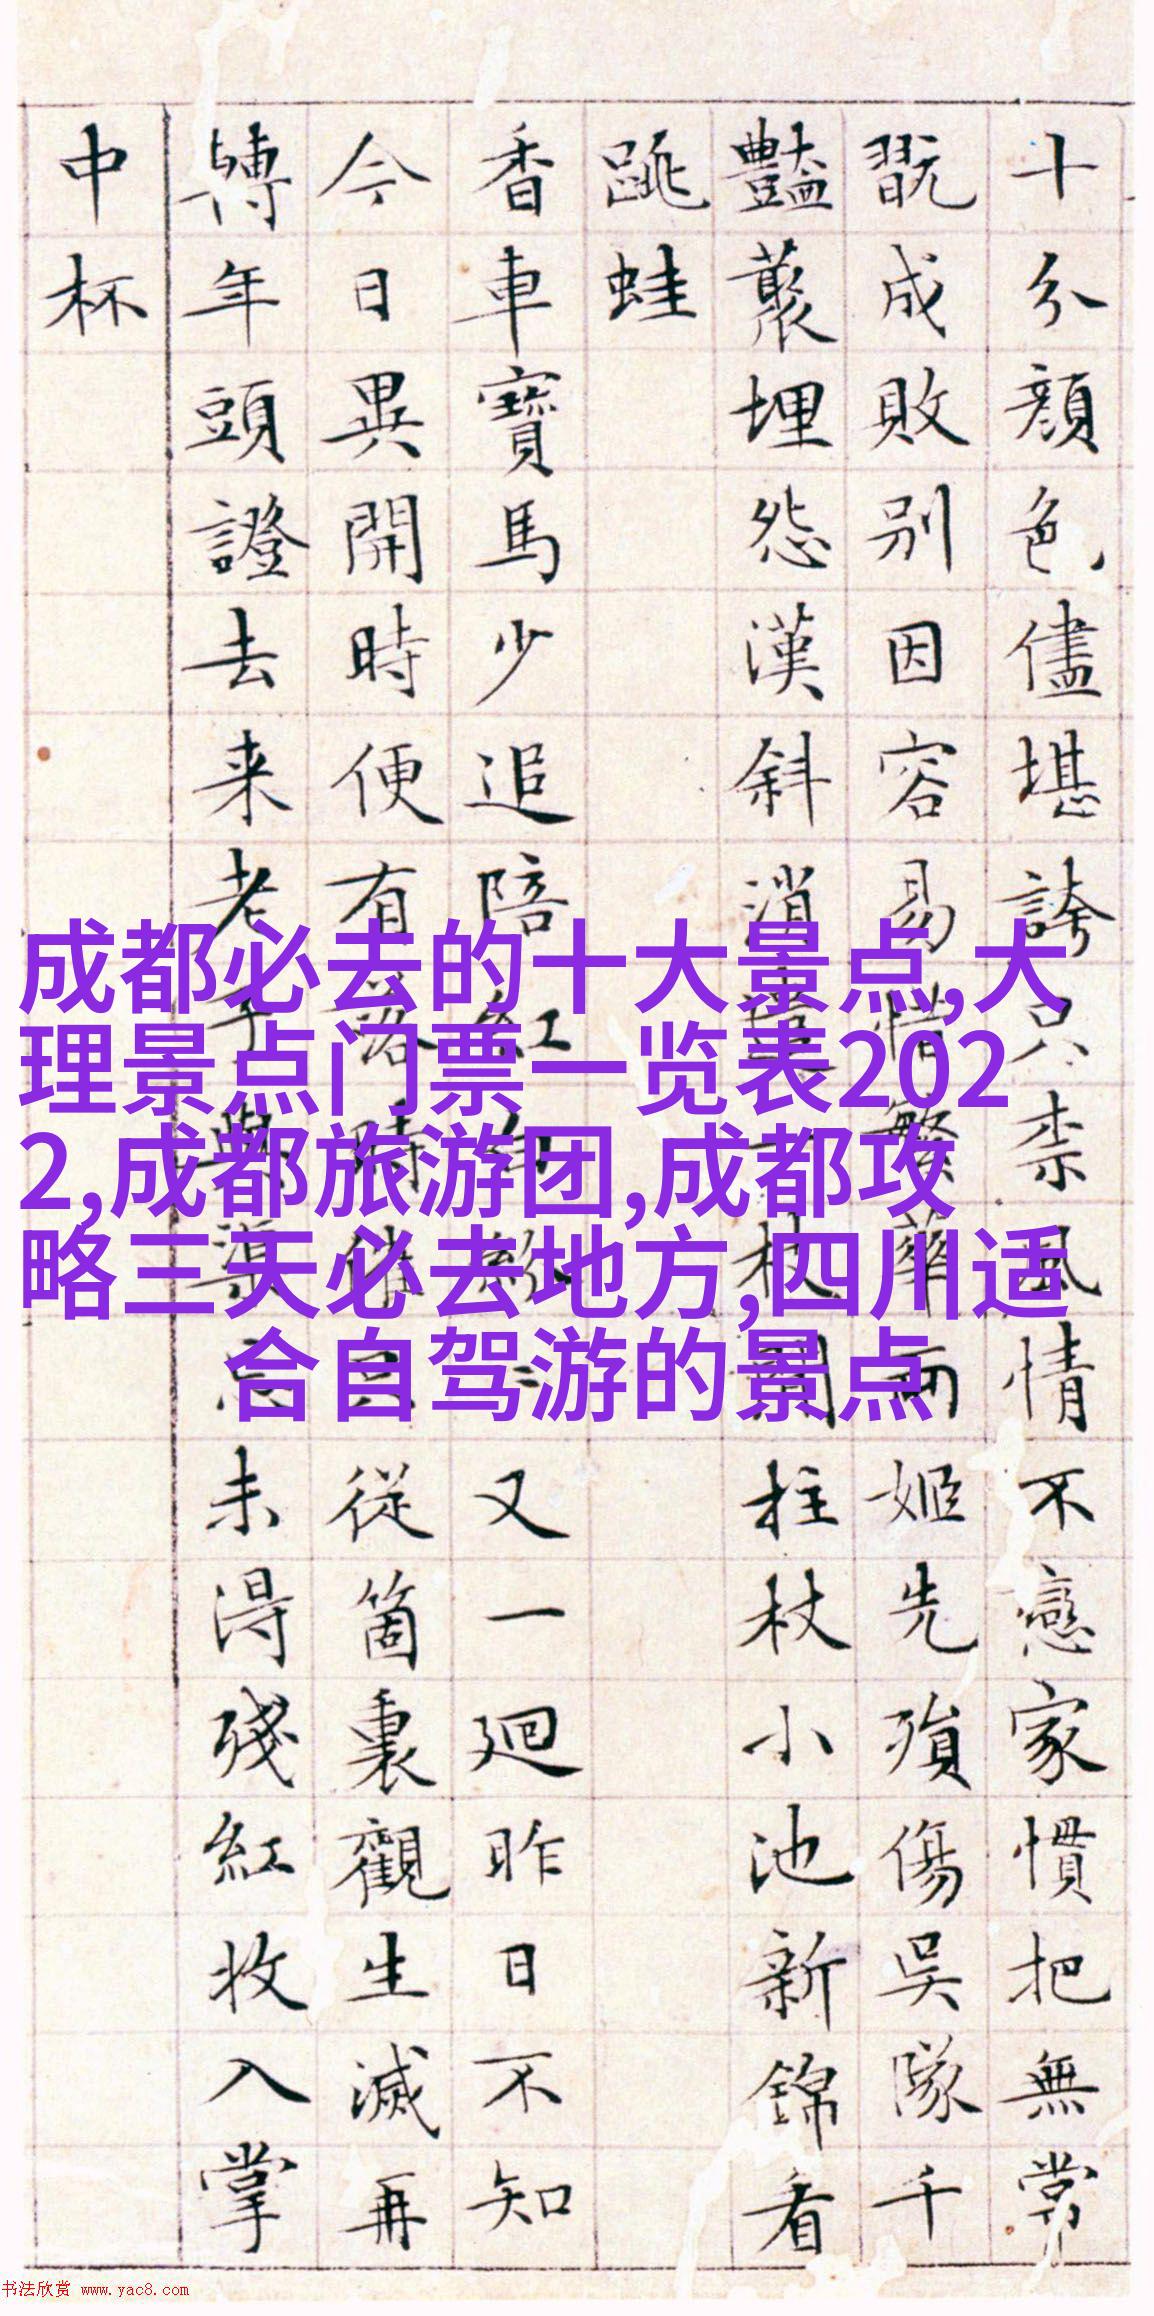 十分顔色儘堪誇只柰風情不戀家慣把無常
翫成敗别因容易惜繁華兩姬先殞傷吳隊千
豔藂埋怨漢斜消遣一枝閒柱杖小池新錦看
跳蛙
香車寶馬少追陪紅白紛紛又一廻昨日不知
今日異開時便有落時催只從箇裏觀生滅再
轉年頭證去来老子與渠忘未得殘紅收入掌
中杯
成都必去的十大景点,大
理景点门票一览表202
2,成都旅游团,成都攻
略三天必去地方,四川适
合自驾游的景点
书法欣赏 www.yac8.com